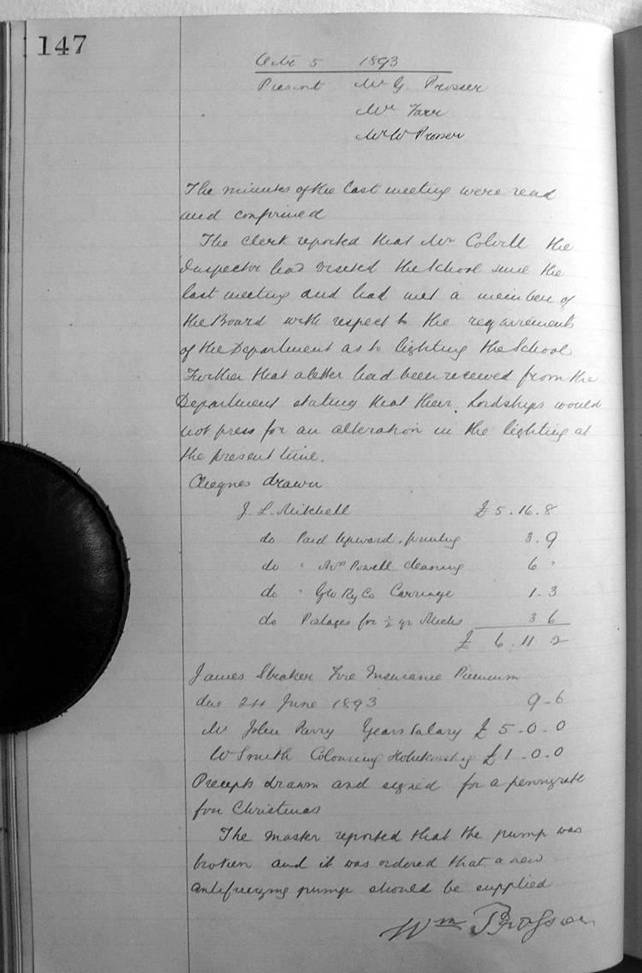 147
Octr 5 1893
Present Mr G. Prosser
Mr Farr
Mr W Prosser
The minutes of the last meeting were read
and confirmed
The Clerk reported that Mr Colvill the
Inspector had visited the School since the
last meeting and had met a member of
the Board with respect to the requirements
of the Department as to lighting the School
Further that a letter had been received from the
Department stating that their Lordships would
not press for an alteration in the lighting at
the present time.
Cheques drawn
J. L. Mitchell £ 5.16.8
do Paid Upward, printing 3.9
do " Mrs Powell cleaning 6 "
do " G W Ry Co Carriage 1.3
do Postages for ½ yr Mitchs 3 6
£ 6.11 2
James Straker Fire Insurance Premium
due 24 June 1893 9-6
Mr John Parry Years Salary £ 5-0-0
W Smith Colouring £1-0-0
Precepts drawn and signed for a penny rate
for Christmas
The Master reported that the pump was
broken and it was ordered that a new
antifreezing pump should be supplied
Wm Prosser